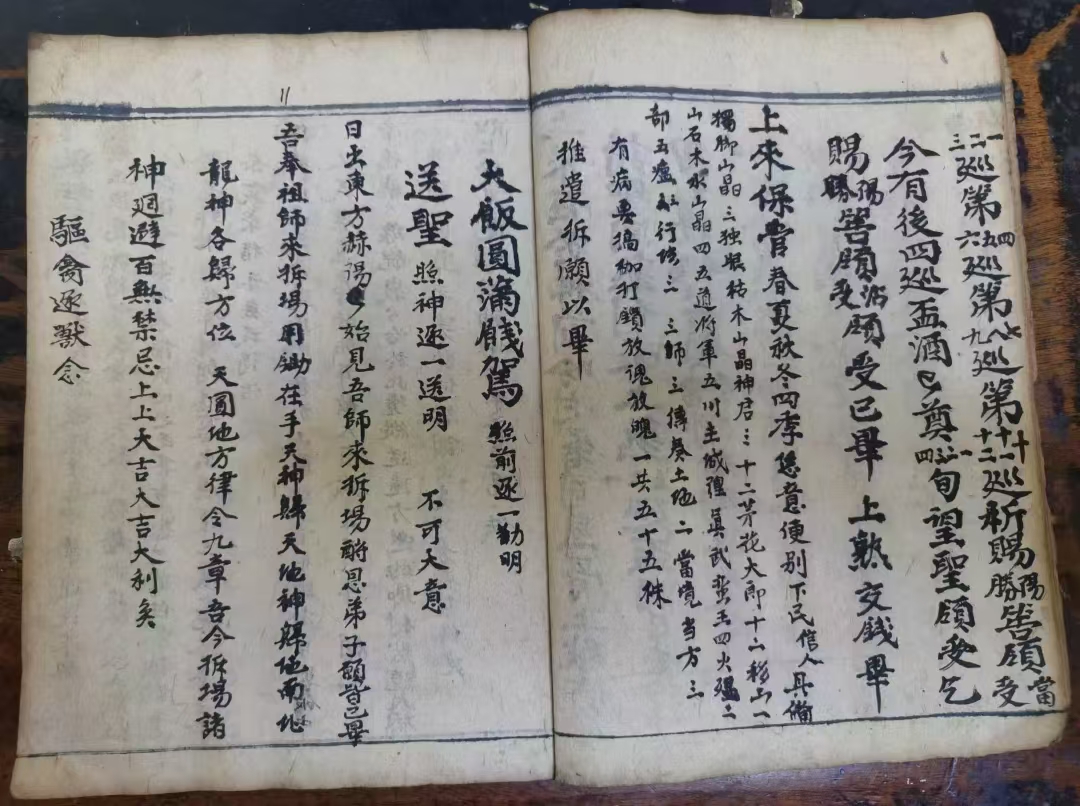 一二三巡第四五六巡第七八九巡第十十一十二巡祈賜陽勝筶領受當
今有後四巡盃酒已奠一二三四旬望聖領受乞
賜陽勝筶領沾受領受已畢 上熟交錢畢
上來保管春夏秋冬四季恁意便別下民信人具備
獨脚山晶三独眼枯木山晶神君三十二茅花大郎十二移山一
山石木水山晶四五道將軍五川主城隍真武蛮王四火瘟二
部五瘟行傩三 三師三傳奏土地二當境当方三
有病要搞枷打鎖放魂放魄一共五十五秼
推遣拆願以畢
大飯圓滿餞駕 照前逐一勸明
送聖 照神逐一送明 不可大意
日出東方赫陽 始見吾師來拆場酧恩弟子願皆已畢
吾奉祖師來拆場用锄在手天神歸天地神歸地南北
龍神各歸方位 天圓地方律令九章吾今拆場諸
神廻避百無禁忌上上大吉大吉大利矣
驅禽逐獸念
11